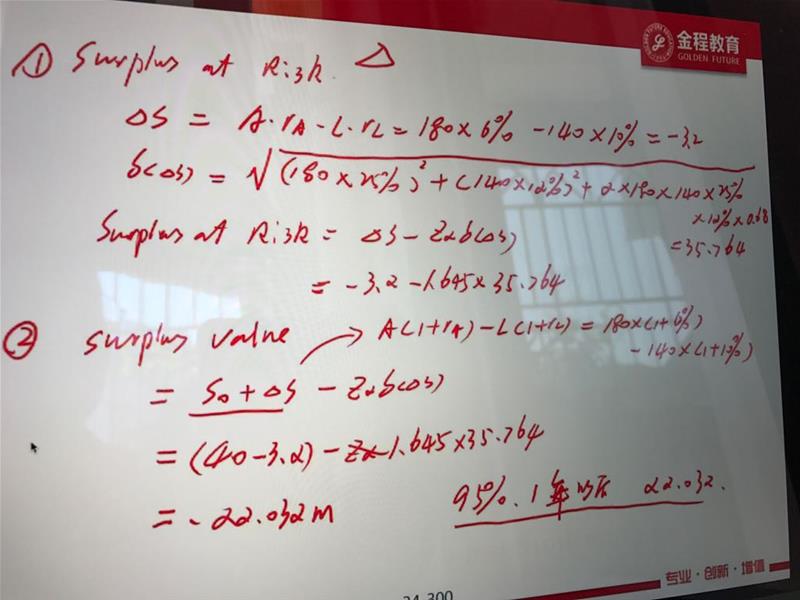 金程教育
GOLDEN FUTURE
① Surplus at Risk. Δ
ΔS = A·rA - L·rL = 180×6% - 140×10% = -3.2
б(ΔS) = √(180×25%)² + (140×12%)² + 2×180×140×25%
×12%×0.68
= 35.764
Surplus at Risk = ΔS - Zαб(ΔS)
= -3.2 - 1.645×35.764
② Surplus value → A(1+rA) - L(1+rL) = 180×(1+6%)
- 140×(1+10%)
= S₀ + ΔS - Zαб(ΔS)
= (40-3.2) - Zα 1.645×35.764
= -22.032m
95%. 1年以后 22.032.
专业·创新·增值
24-300